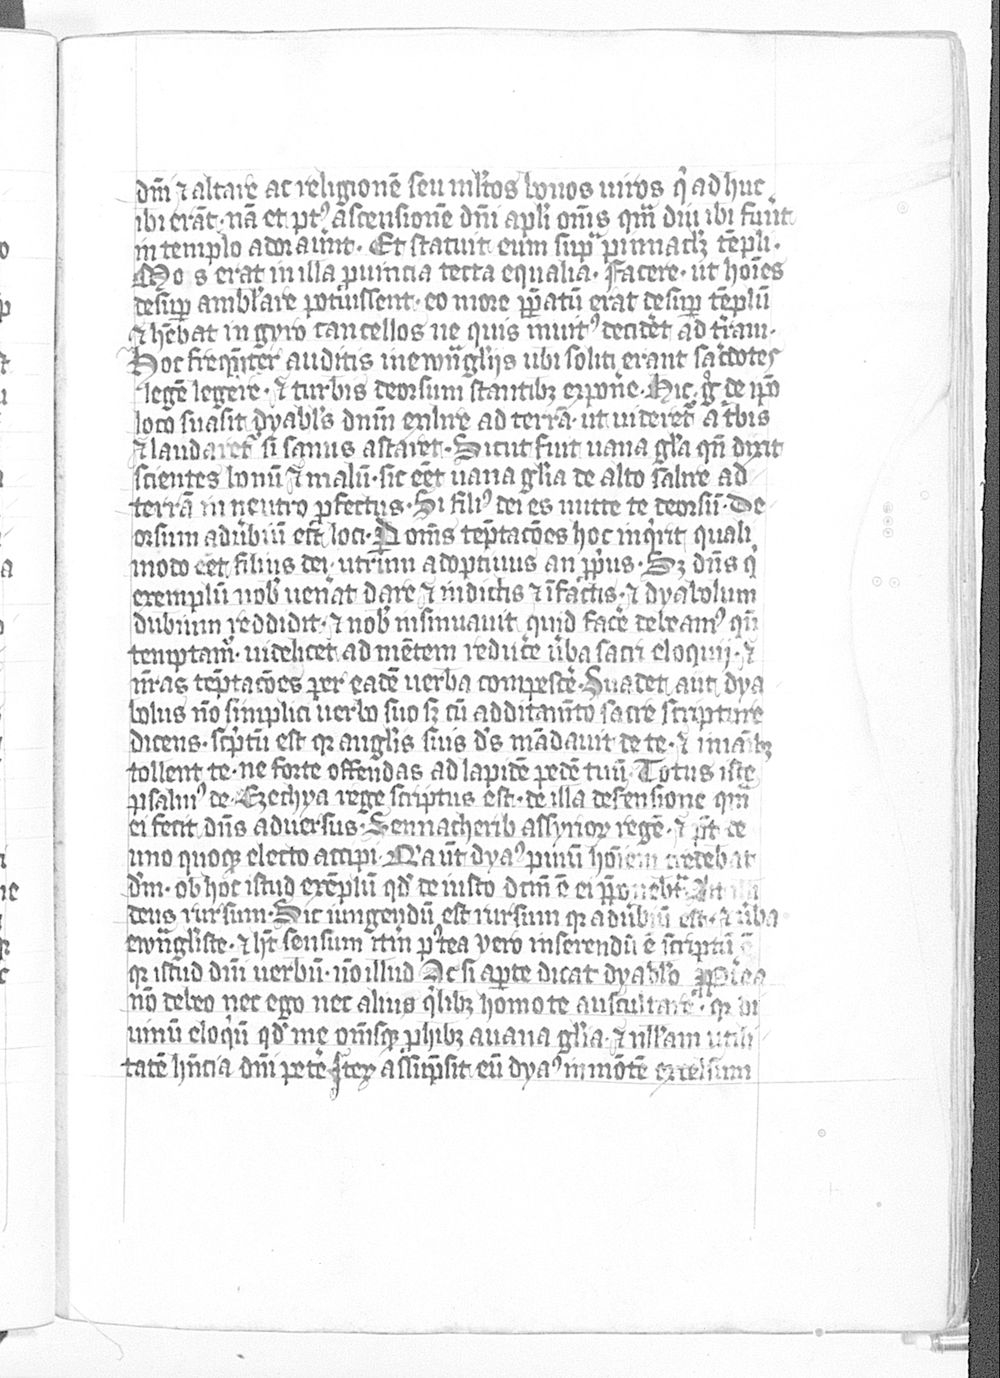 dn̄i ⁊ altare ac religionē seu ml̄tos bonos uiros qͥ ad huc
ibi erāt · nā et ptꝰ ascensionē dn̄i apl̄i om̄s qm̄ diu ibi fuer̄t
in templo adorauer̄t · Et statuit eum supͣ pinnacl̄ꝫ tēpli ·
Mos erat in illa ꝓuincia tecta equalia · facere · ut hoīes
desuꝑ ambl̄are potuissent · eo more ꝑatū erat desuꝑ tēplū
⁊ hēbat in gyro cancellos ne quis inuitꝰ decidēt ad tr̄am ·
Hoc frequn̄ter auditis in ewn̄glijs ubi soliti erant sac̄dotes
legē legere · ⁊ turbis deorsum stantibꝫ exponē · Hic gͦ de ip̄o
loco suasit dyabl̄s dnm̄ exlire ad terrā · ut uideret᷑ a t᷑bis
⁊ laudaret᷑ si sanus astaret · Sicut fuit uana gl̄a qn̄ dixit
scientes bonū ⁊ malū · sic eēt uana gl̄ia de alto salire ad
terrā in neutro ꝓfectus · Si filiꝰ dei es mitte te deorsū · De
orsum aduerbiū est loci · P om̄s tēptacōes hoc inqͥrit quali
modo eēt filius dei · utrum adoptiuus an ꝓpͥus · Sꝫ dn̄s qͥ
exemplū nob̄ uen̄at dare ⁊ in dictis ⁊ ī factis · ⁊ dyabolum
dubium reddidit · ⁊ nob̄ insinuauit quid facē debeamꝰ qn̄
temptam᷑ · uidelicet ad mētem reducē u̓ba sacri eloquij · ⁊
nr̄as tēptacōes per eadē uerba compescē · Suadet aut̄ dya
bolus nō simplici uerbo suo sꝫ cū additamt̄o sacre scripture
dicens · sc̄ptū est qꝛ angl̄is suis dꝰs mādauit de te · ⁊ in manibꝫ
tollent te · ne forte offendas ad lapidē pedē tuū · Totus iste
psalmꝰ de Ezechya rege scriptus est · de illa defensione qm̄
ei fecit dn̄s aduersus · Sennacherib assyrioꝝ regē · ⁊ pt̄ de
uno quoqꝫ electo accipi · Na ut̄ dyaꝰ purū hoīem credebat
dm̄ · ob hoc istud exēplū qd̓ de iusto dcm̄ ē ei ꝓponebat᷑ · Ait illi
deus rursum · Sic iungendū est rursum qꝛ aduerbiū est · ⁊ u̓ba
ewn̄gliste · ⁊ ht̄ sensum it̄m pꝰtea vero inserendū ē scriptū ē
qꝛ istud dm̄ uerbū · nō illud Ac si aꝑte dicat dyabl̄o ꝓpͭea
nō debeo nec ego nec alius qͥlibꝫ homo te auscultare · qꝛ di
uinū eloqͥū qd̓ me om̄sqꝫ ꝓhibꝫ a uana gl̄ia · ⁊ nll̄am utili
tatē hn̄cia dm̄ petē Iteꝝ assūpsit eū dyaꝰ in mōtē excelsum